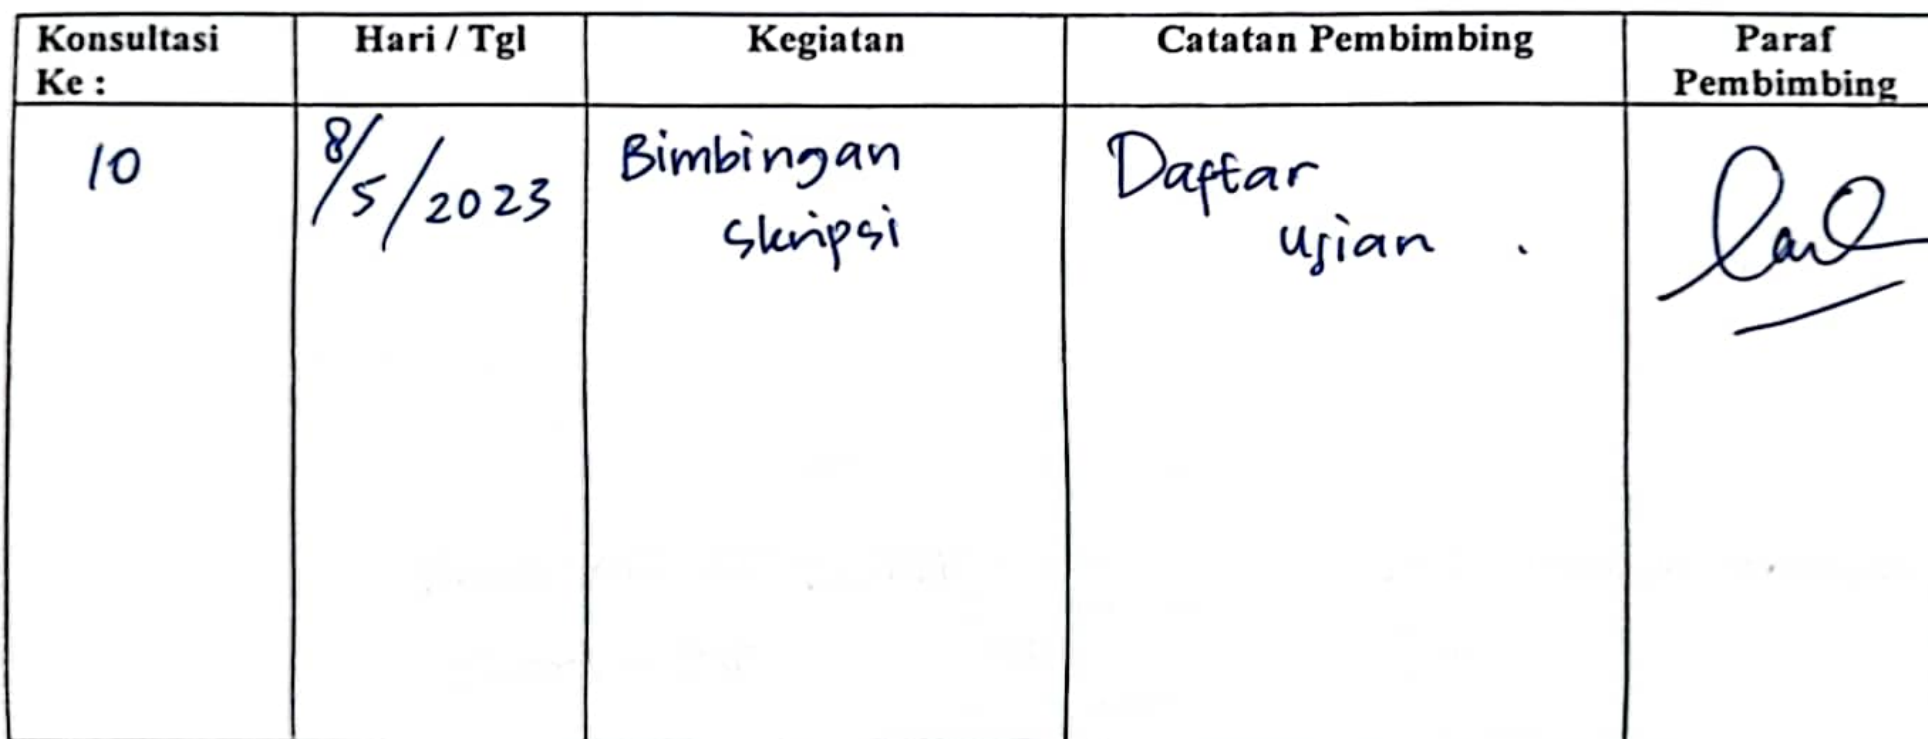 Konsultasi Ke :
Hari / Tgl
Kegiatan
Catatan Pembimbing
Paraf Pembimbing
10
8/5/2023
Bimbingan
skripsi
Daftar
Ujian .